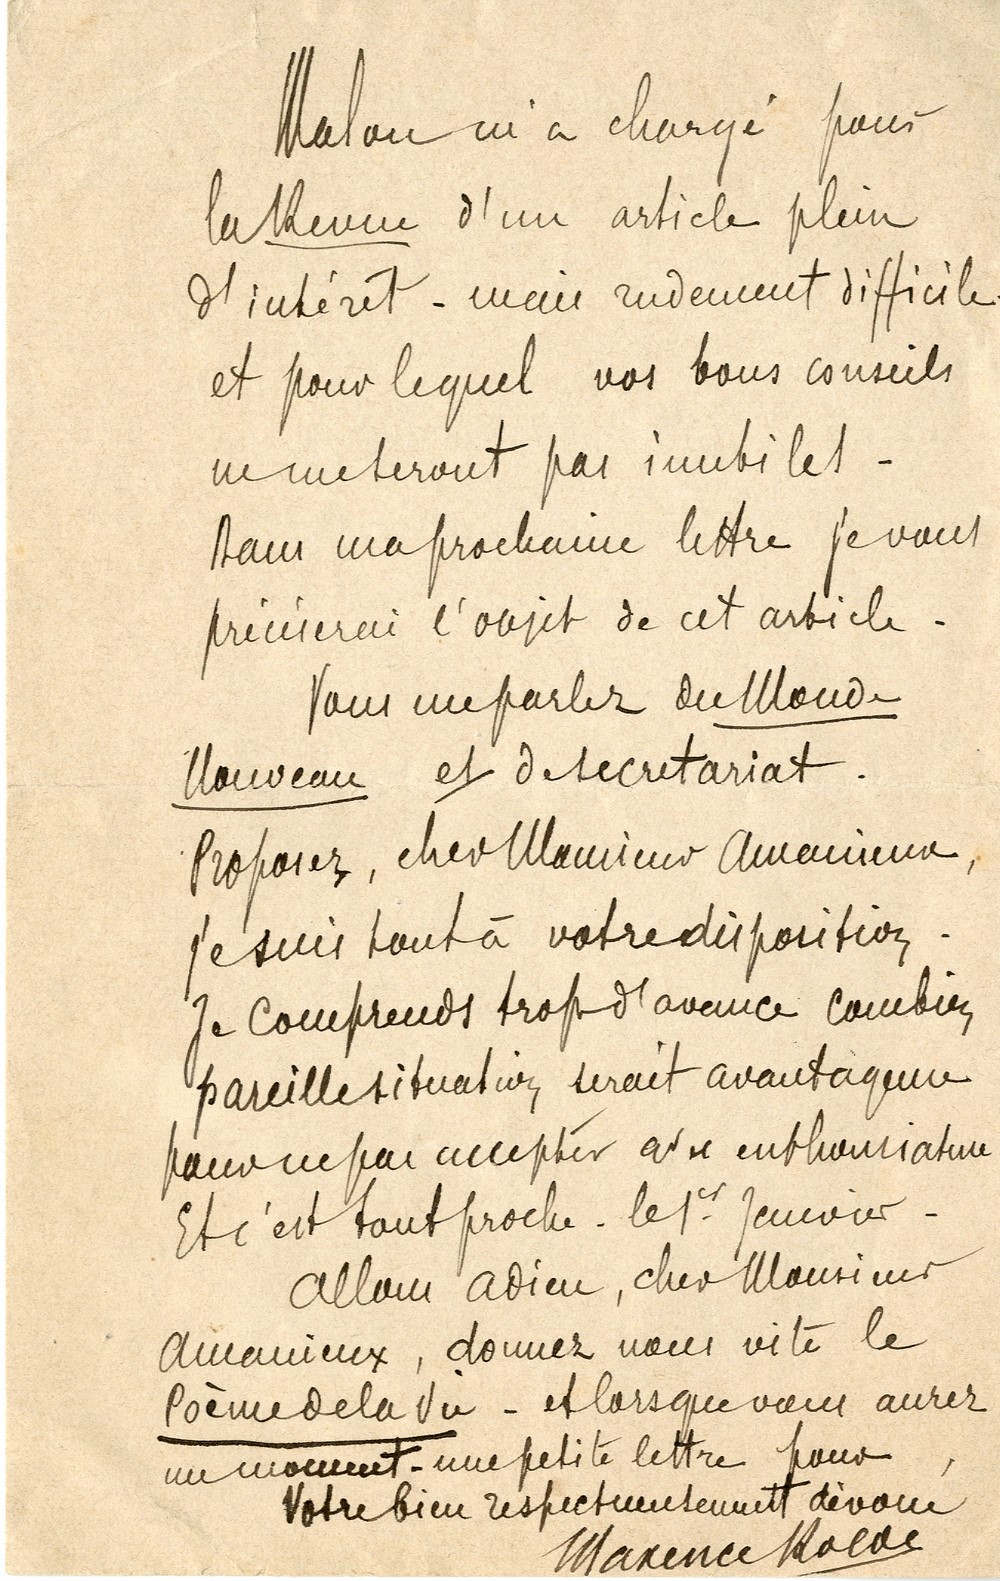 Malon m'a chargé pour
la Revue d'un article plein
d'intérêt - mais rudement difficile.
et pour lequel vos bons conseils
ne me seront pas inutiles -
Dans ma prochaine lettre je vous
préciserai l'objet de cet article -
Vous me parlez du Monde
Nouveau et de secretariat.
Proposez, cher Monsieur Amanieux,
je suis tout à votre disposition -
Je comprends trop d'avance combien
pareille situation serait avantageuse
pour ne pas accepter avec enthousiasme
Et c'est tout proche - le 1er Janvier -
Allons adieu, cher Monsieur
Amanieux, donnez nous vite le
Poème de la Vie - et lorsque vous aurez
un moment - une petite lettre pour,
Votre bien respectueusement dévoué
Maxence Roldes